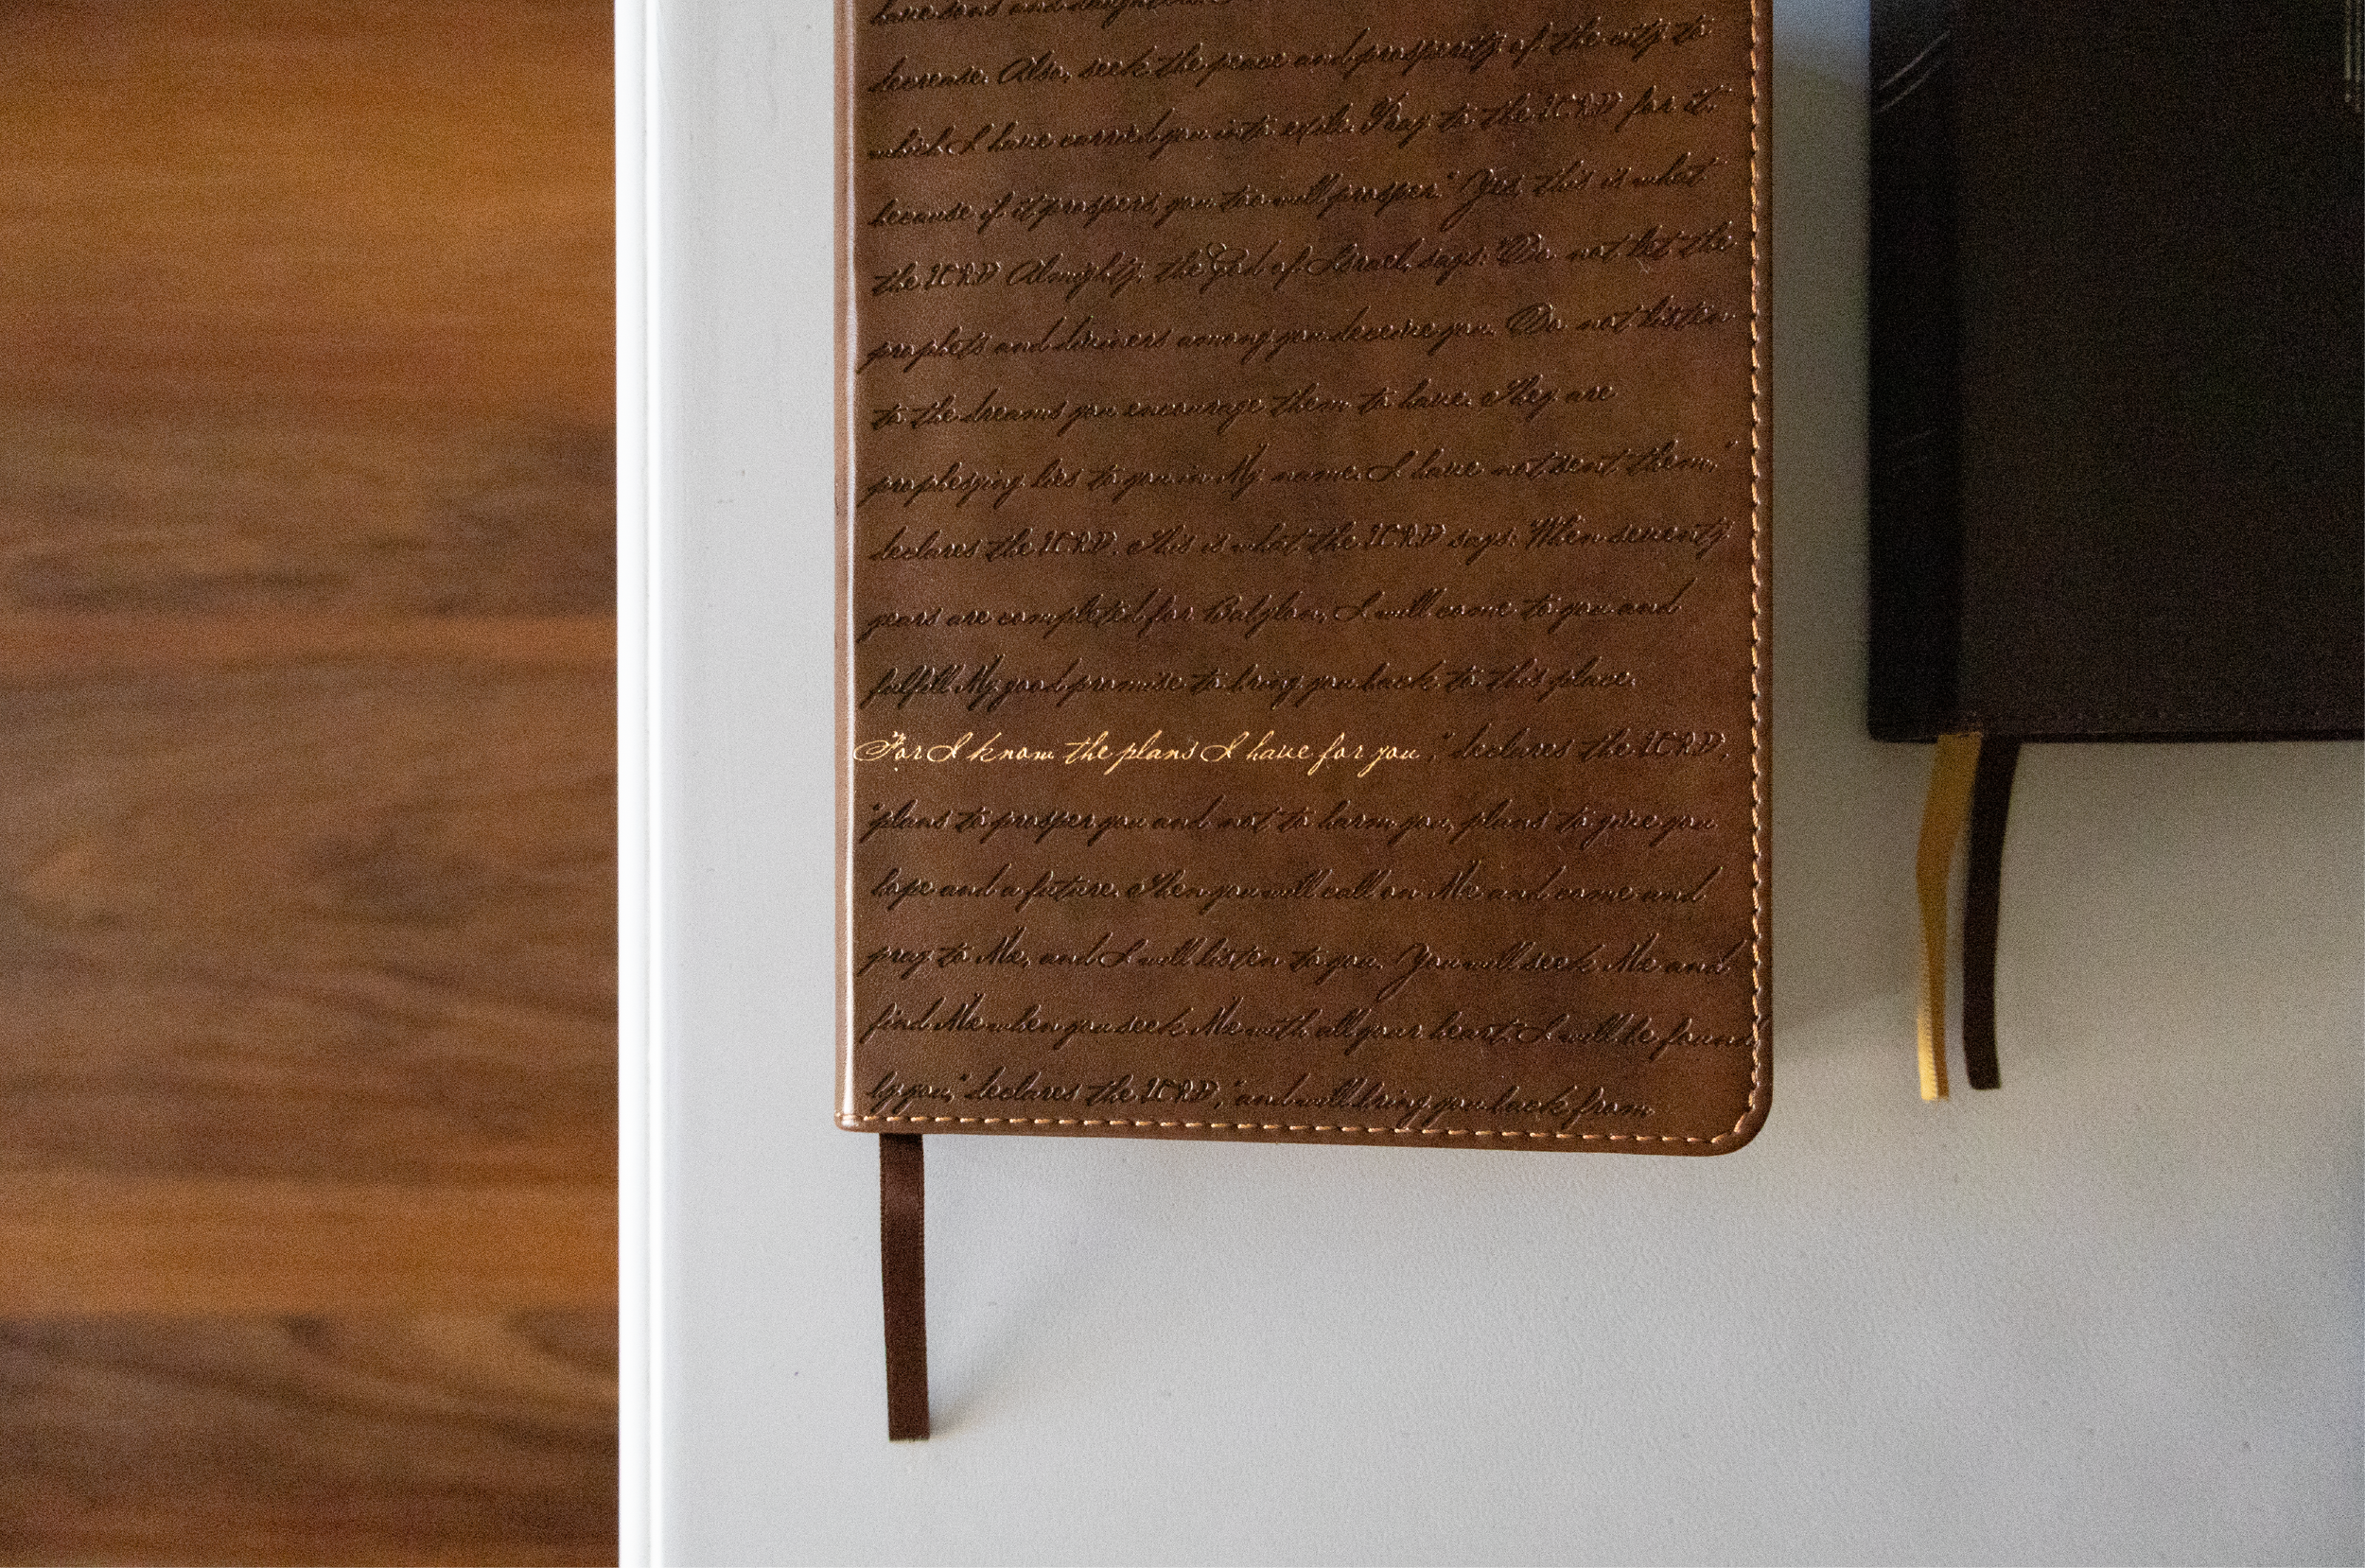 have sons and daughters.
decrease. Also, seek the peace and prosperity of the city to
which I have carried you into exile. Pray to the LORD for it,
because if it prospers, you too will prosper." Yes, this is what
the LORD Almighty, the God of Israel, says: "Do not let the
prophets and diviners among you deceive you. Do not listen
to the dreams you encourage them to have. They are
prophesying lies to you in My name. I have not sent them,"
declares the LORD. This is what the LORD says: "When seventy
years are completed for Babylon, I will come to you and
fulfill My good promise to bring you back to this place.
For I know the plans I have for you," declares the LORD,
"plans to prosper you and not to harm you, plans to give you
hope and a future. Then you will call on Me and come and
pray to Me, and I will listen to you. You will seek Me and
find Me when you seek Me with all your heart. I will be found
by you," declares the LORD, "and will bring you back from